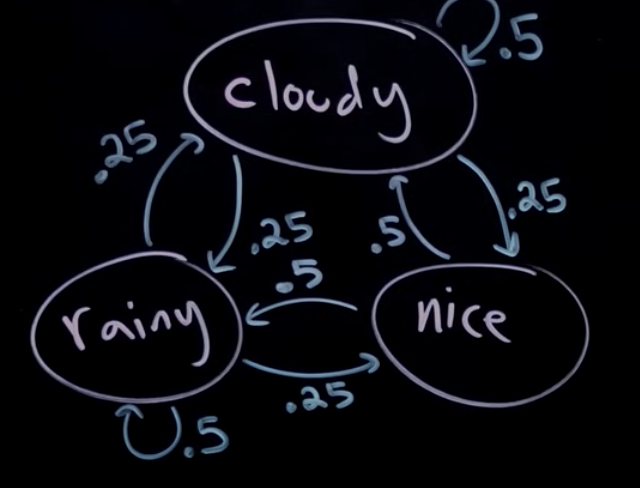 .5
cloudy
.25
.25
.25
.5
.5
rainy
nice
.25
.5